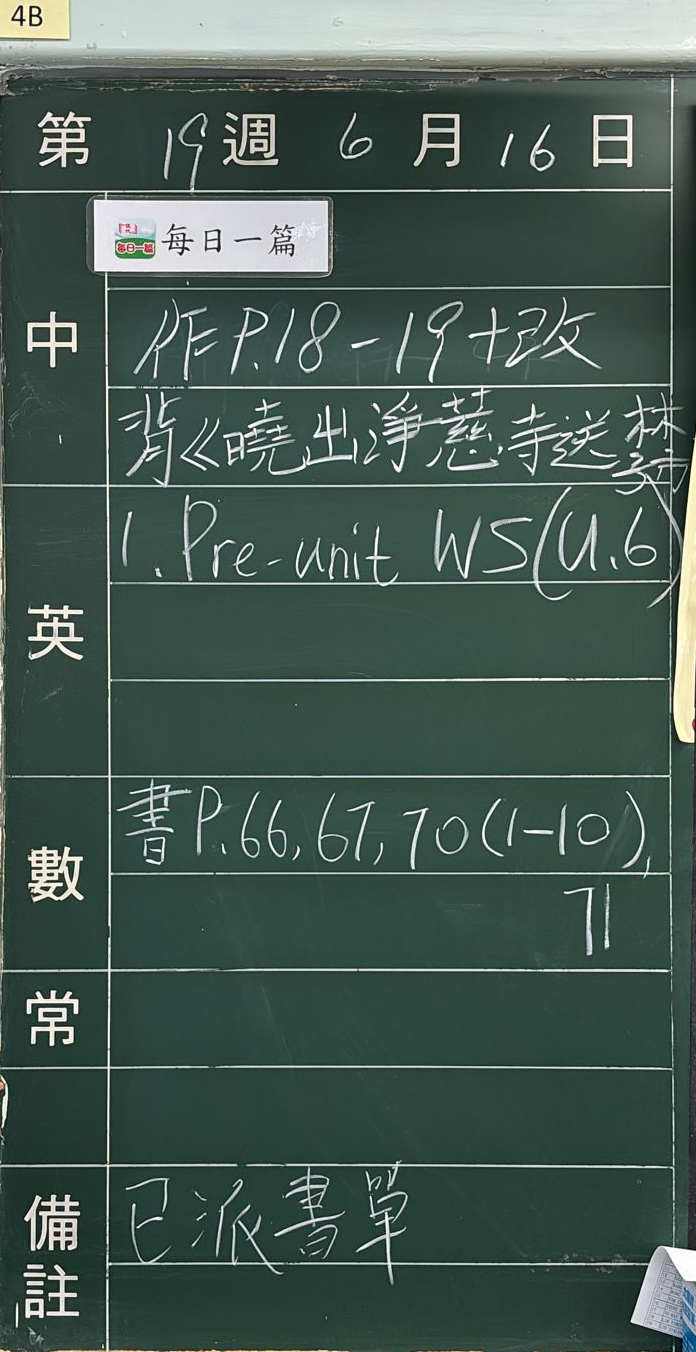 4B
第 19 週 6 月 16 日
中
每日一篇
作P.18-19+改
背《曉出淨慈寺送林子方
英
1. Pre-unit WS(U.6)
數
書P.66,67,70(1-10),
71
常
備註
已派書單